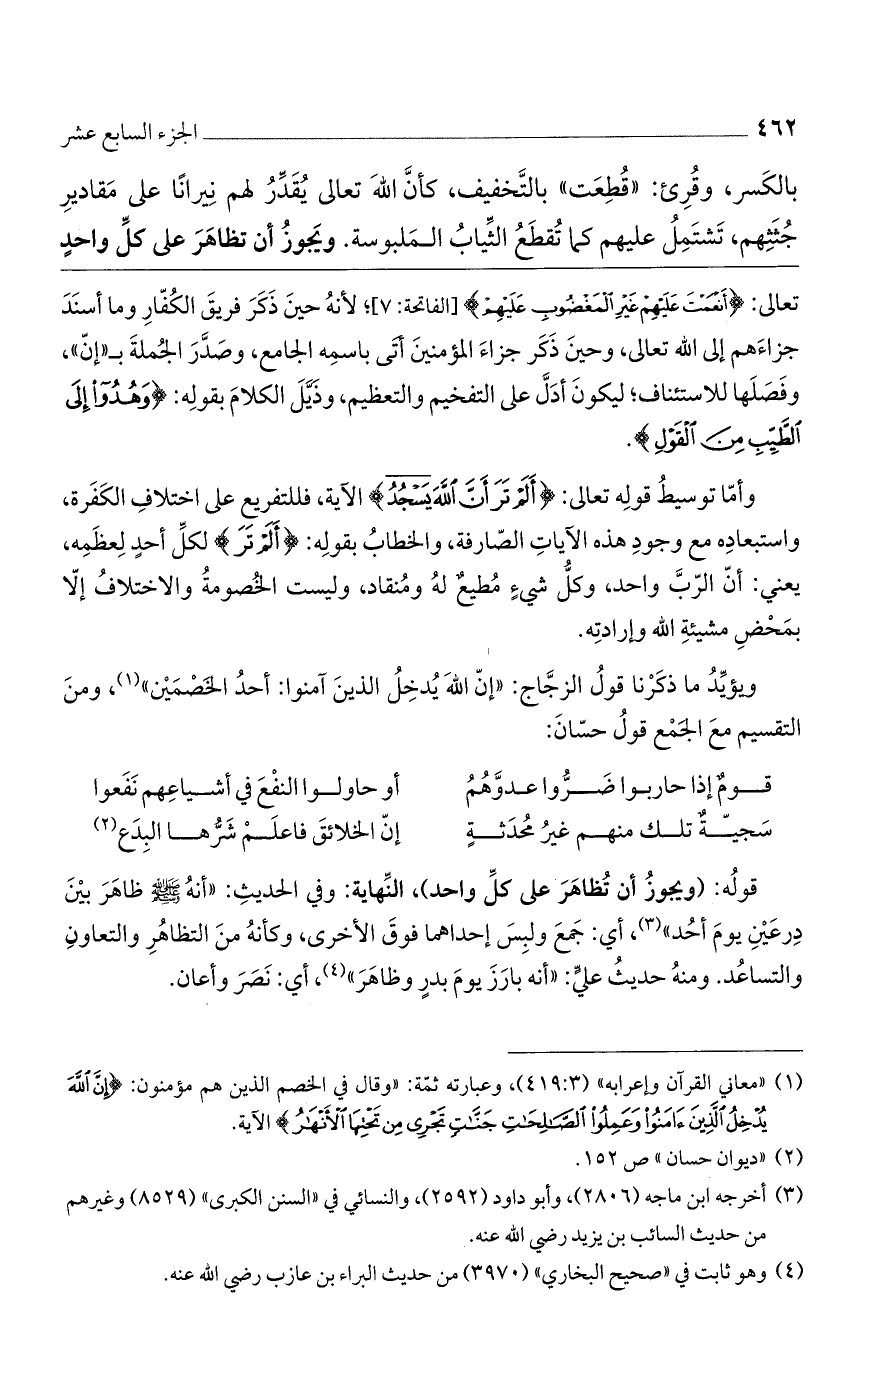 ٤٦٢ الجزء السابع عشر
بالكَسر، وقُرِئ: «قُطِعَت» بالتَّخفيف، كأنَّ اللهَ تعالى يُقَدِّرُ لهم نِيرانًا على مَقاديرِ
جُثَثِهم، تَشتَمِلُ عليهم كما تُقطَعُ الثِّيابُ الـمَلبوسة. ويَجوزُ أن تظاهَرَ على كلِّ واحدٍ
تعالى: ﴿أَنْعَمْتَ عَلَيْهِمْ غَيْرِ الْمَغْضُوبِ عَلَيْهِمْ﴾ [الفاتحة: ٧]؛ لأنهُ حينَ ذَكَرَ فريقَ الكُفّارِ وما أسنَدَ
جزاءَهم إلى الله تعالى، وحينَ ذَكَر جزاءَ المؤمنينَ أتَى باسمِه الجامع، وصَدَّرَ الجُملةَ بـ«إنّ»،
وفَصَلَها للاستئناف؛ ليكونَ أدَلَّ على التفخيم والتعظيم، وذَيَّلَ الكلامَ بقولِه: ﴿وَهُدُوٓا۟ إِلَى
ٱلطَّيِّبِ مِنَ ٱلْقَوْلِ﴾.
وأمّا توسيطُ قولِه تعالى: ﴿أَلَمْ تَرَ أَنَّ ٱللَّهَ يَسْجُدُ﴾ الآية، فللتفريع على اختلافِ الكَفَرة،
واستبعادِه مع وجودِ هذه الآياتِ الصّارفة، والخطابُ بقولِه: ﴿أَلَمْ تَرَ﴾ لكلِّ أحدٍ لِعظَمِه،
يعني: أنّ الرّبَّ واحد، وكلُّ شيءٍ مُطيعٌ لهُ ومُنقاد، وليست الخُصومةُ والاختلافُ إلّا
بمَحْضِ مشيئةِ الله وإرادتِه.
ويؤيِّدُ ما ذكَرْنا قولُ الزجَّاج: «إنّ اللهَ يُدخِلُ الذينَ آمنوا: أحدُ الخَصْمَيْن»(١)، ومنَ
التقسيم معَ الجَمْع قولُ حسّانَ:
قـــومٌ إذا حاربـوا ضَـــرُّوا عـدوَّهُمُ أو حاولـــوا النفْعَ في أشـــياعِهم نَفَعوا
سَجيّـــةٌ تلـــك منهـــم غيرُ مُحدَثـــةٍ إنّ الخلائقَ فاعلَـــمْ شَرُّهـــا البِدَع(٢)
قولُه: (ويجوزُ أن تُظاهَرَ على كلِّ واحد)، النِّهاية: وفي الحديثِ: «أنهُ ﷺ ظاهَرَ بيْنَ
دِرعَيْنِ يومَ أُحُد»(٣)، أي: جَمَعَ ولبِسَ إحداهما فوقَ الأخرى، وكأنهُ منَ التظاهُرِ والتعاونِ
والتساعُد. ومنهُ حديثُ عليٍّ: «أنه بارَزَ يومَ بدرٍ وظاهَرَ»(٤)، أي: نَصَرَ وأعان.
(١) «معاني القرآن وإعرابه» (٣: ٤١٩)، وعبارته ثمّة: «وقال في الخصم الذين هم مؤمنون: ﴿إِنَّ ٱللَّهَ
يُدْخِلُ ٱلَّذِينَ ءَامَنُوا۟ وَعَمِلُوا۟ ٱلصَّـٰلِحَـٰتِ جَنَّـٰتٍ تَجْرِى مِن تَحْتِهَا ٱلْأَنْهَـٰرُ﴾ الآية.
(٢) «ديوان حسان» ص ١٥٢.
(٣) أخرجه ابن ماجه (٢٨٠٦)، وأبو داود (٢٥٩٢)، والنسائي في «السنن الكبرى» (٨٥٢٩) وغيرهم
من حديث السائب بن يزيد رضي الله عنه.
(٤) وهو ثابت في «صحيح البخاري» (٣٩٧٠) من حديث البراء بن عازب رضي الله عنه.